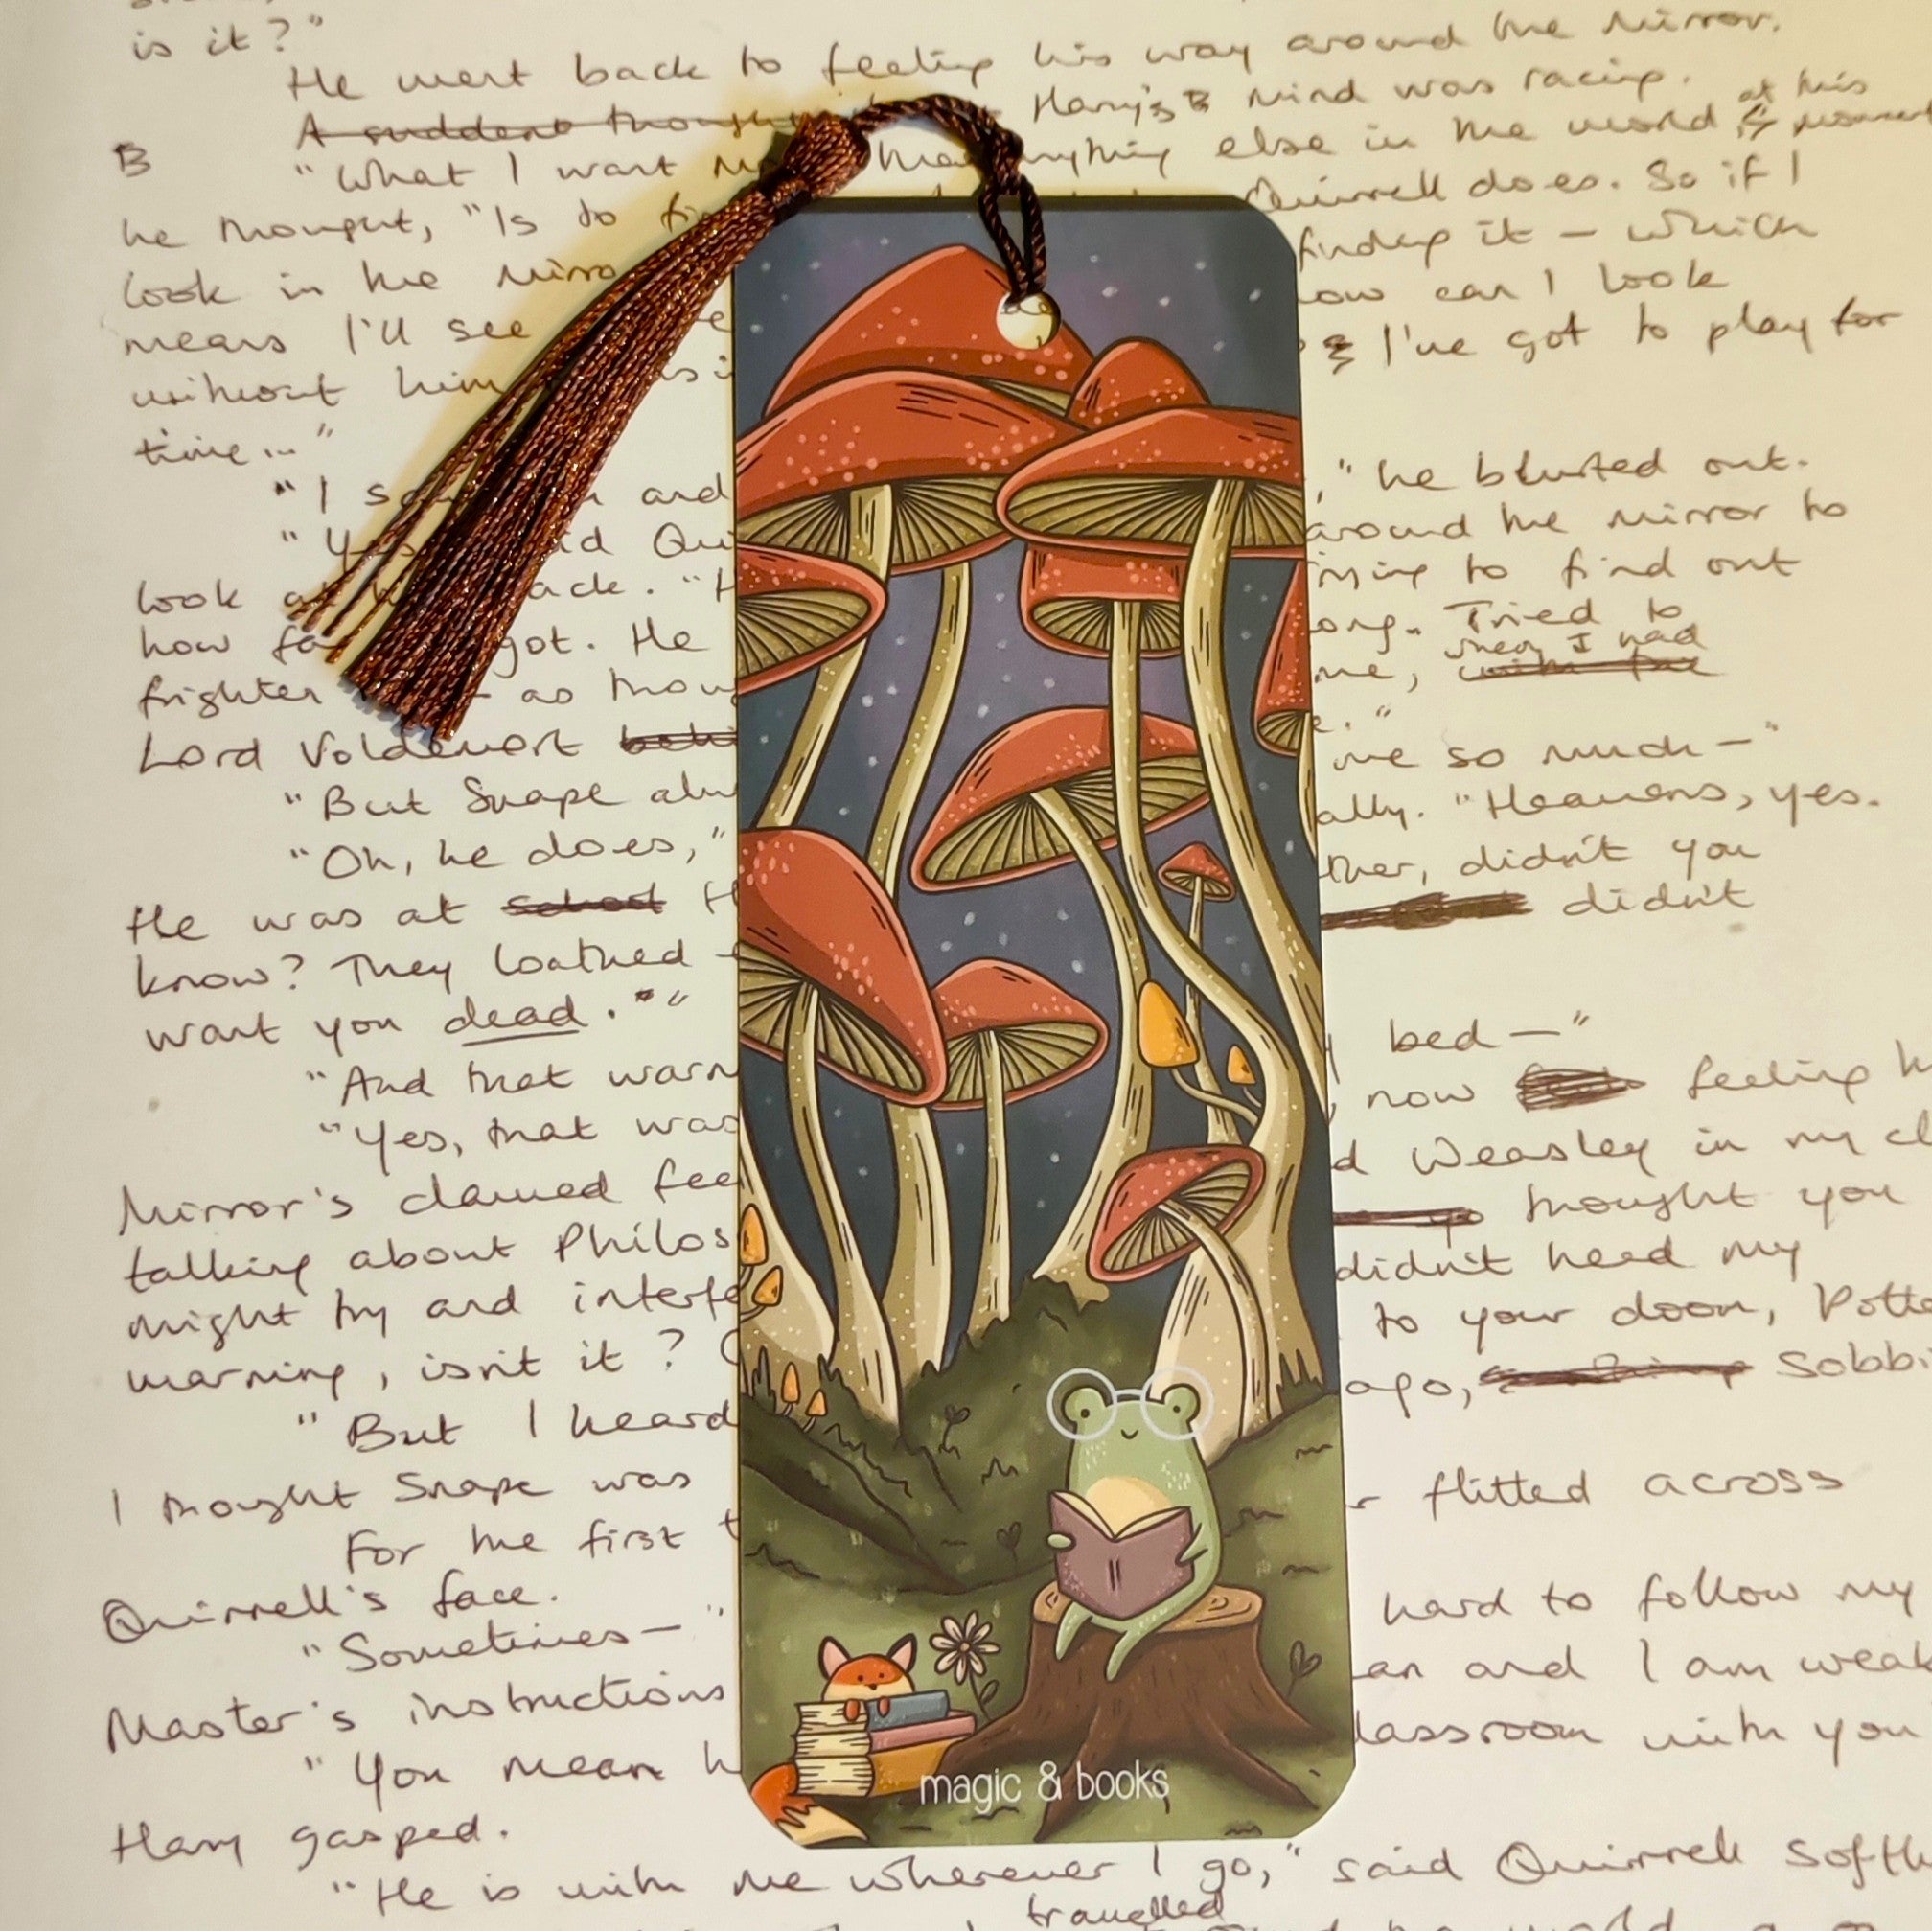 is it?"
He went back to feeling his way around the mirror.
A suddens though Harry's mind was racing.
B "What I want m anything else in the world at this moment
he thought, "Is to fi Quirrell does. So if I
look in the mirro finding it – which
means I'll see how can I look
without him I've got to play for
time..."
"I s and ," he blurted out.
"Yes id Qui around the mirror to
look a ack. "H rying to find out
how fa got. He ong. Tried to
frighten – as thou me, when I had
Lord Voldemort behi e."
"But Snape alw me so much —"
"Oh, he does," ally. "Heavens, yes.
He was at school H ther, didn't you
know? They loathed didn't
want you dead."
"And that warn bed —"
"Yes, that was now feeling h
Mirror's clawed fee d Weasley in my cl
talking about Philos thought you
might try and interfe didn't heed my
warning, isn't it? to your doom, Potte
"But I heard ago, Sobbi
I thought Snape was
For the first t r flitted across
Quirrell's face.
"Sometimes — " hard to follow my
Master's instructions an and I am weak
"You mean h lassroom with you
Harry gasped.
"He is with me wherever I go," said Quirrell softl
travelled
magic & books